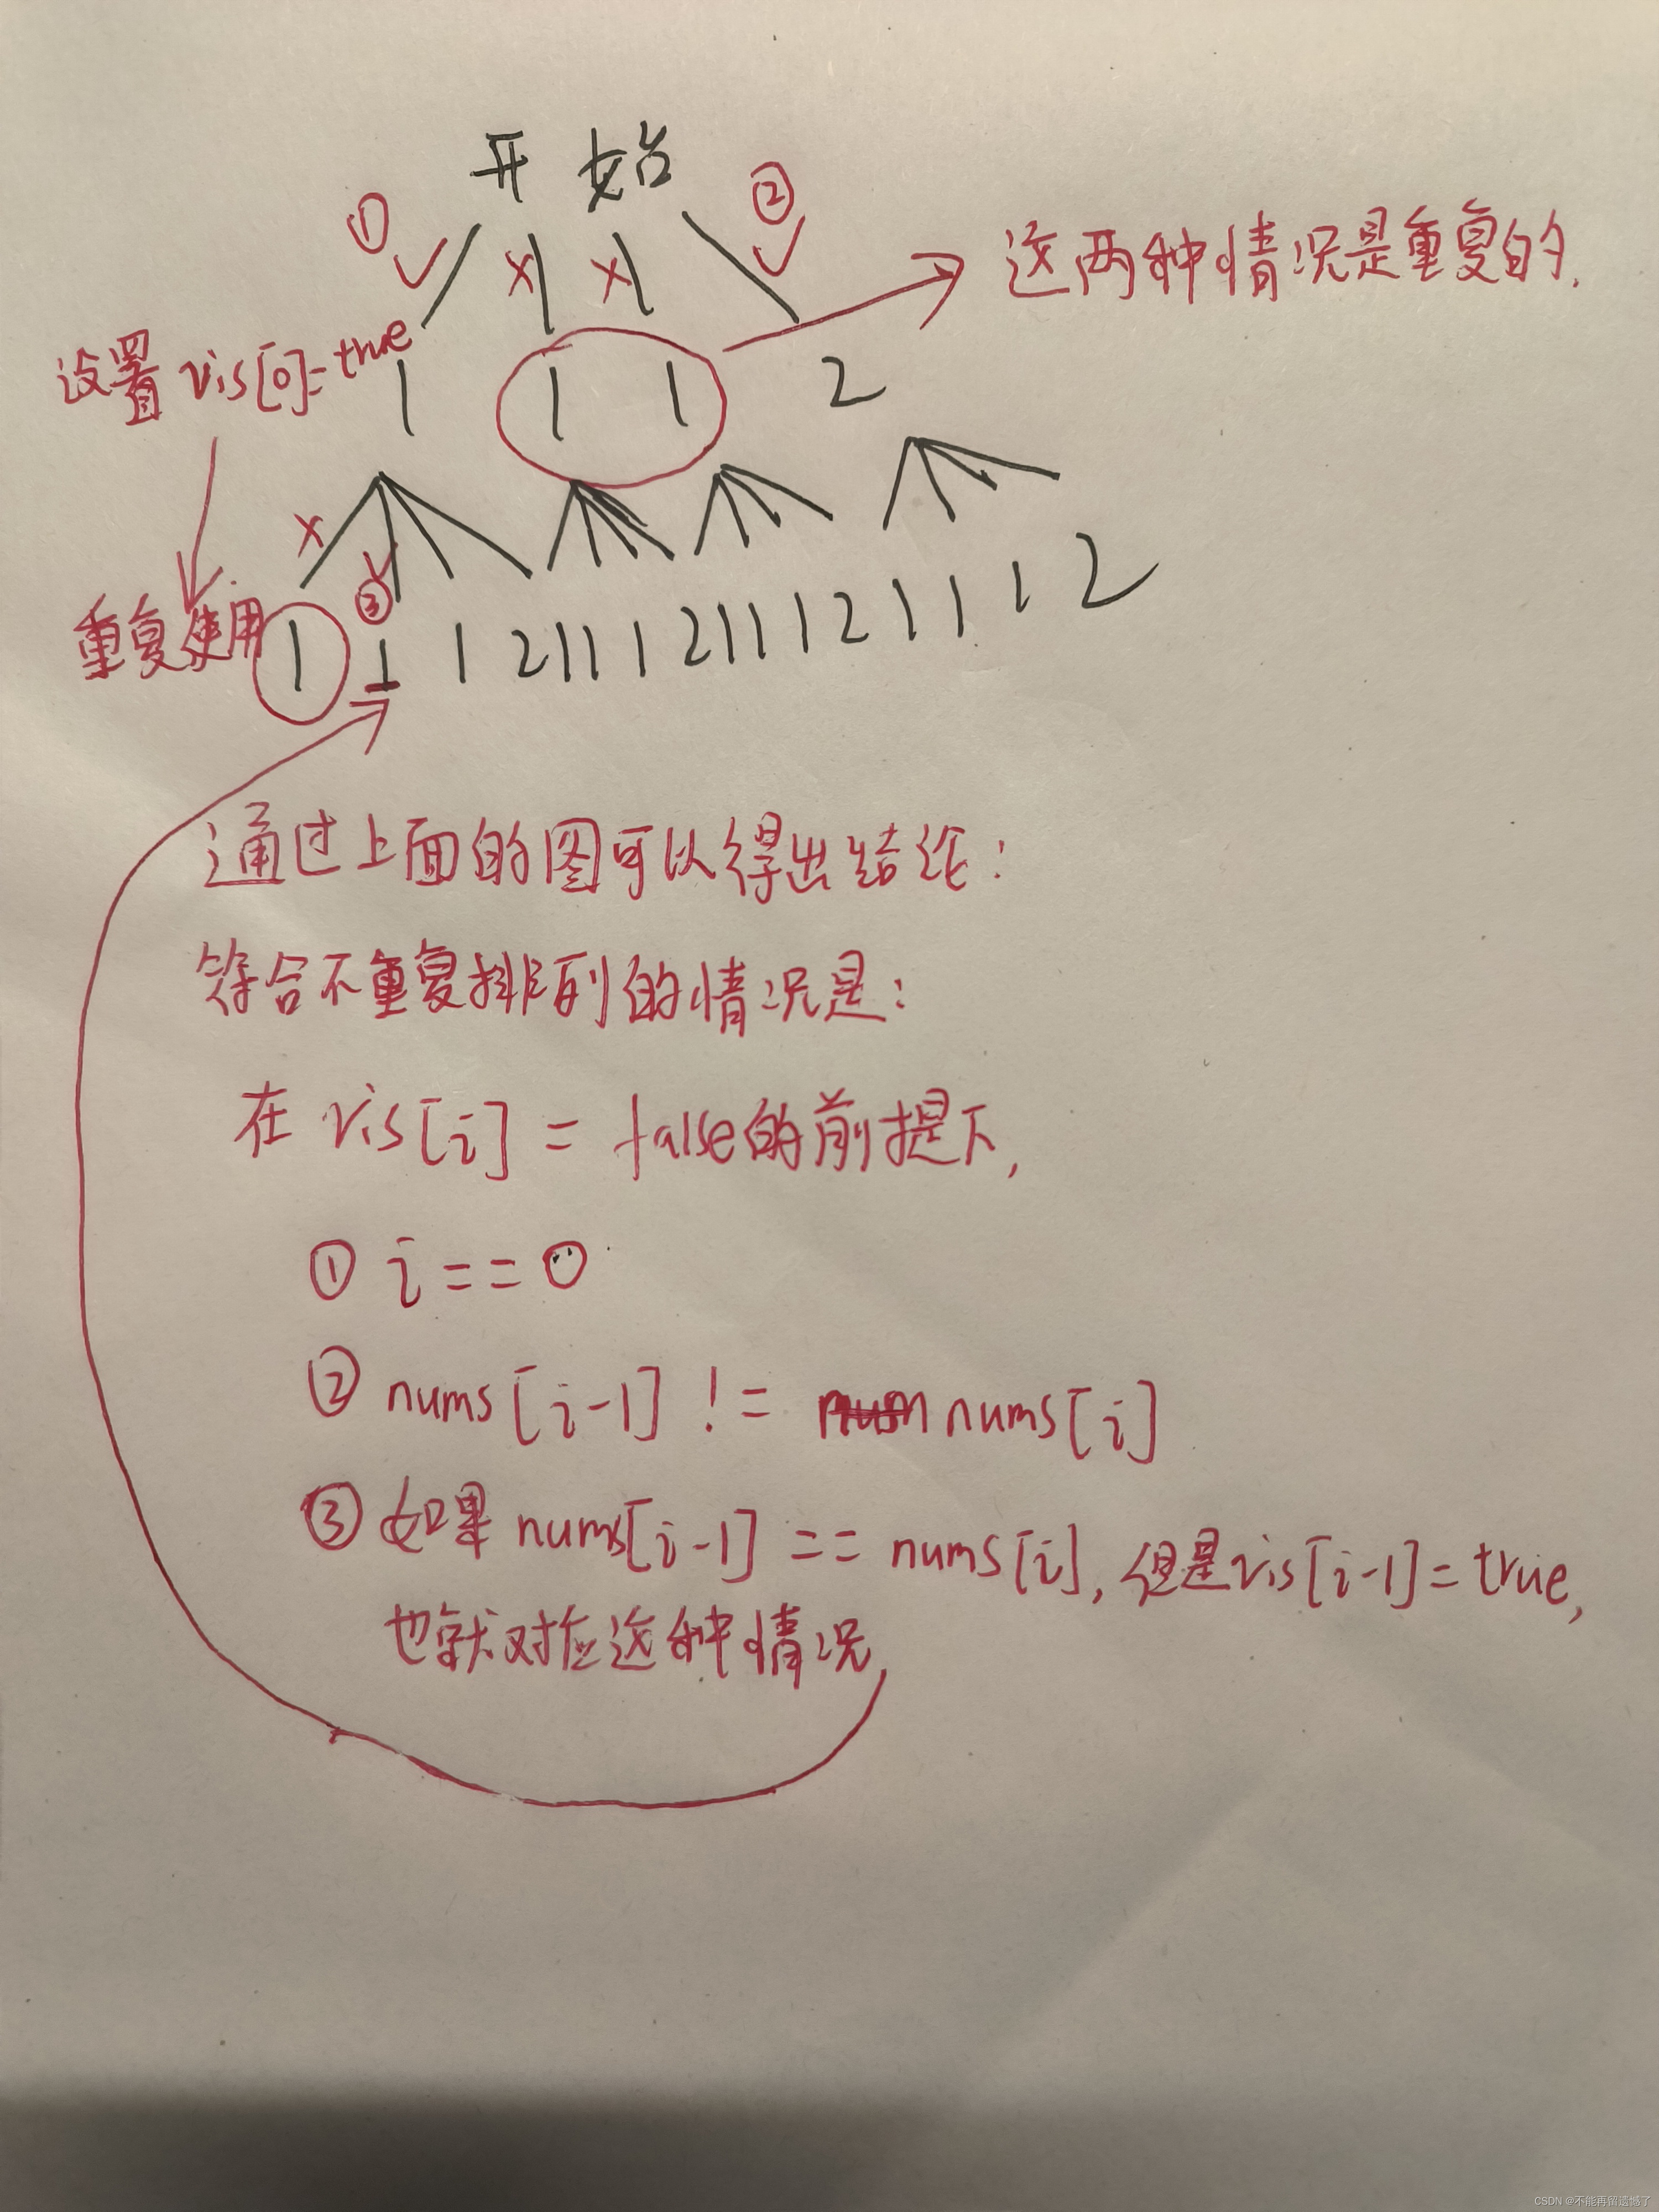 开始
① ②
这两种情况是重复的.
设置 vis[0]=true
1 1 1 2
重复使用 ③
1 1 1 2 1 1 1 2 1 1 1 2 1 1 1 2
通过上面的图可以得出结论:
符合不重复排列的情况是:
在 vis[i] = false的前提下,
① i == 0
② nums[i-1] != nums[i]
③ 如果 nums[i-1] == nums[i], 但是vis[i-1]=true,
也就对应这种情况
CSDN @不能再留遗憾了